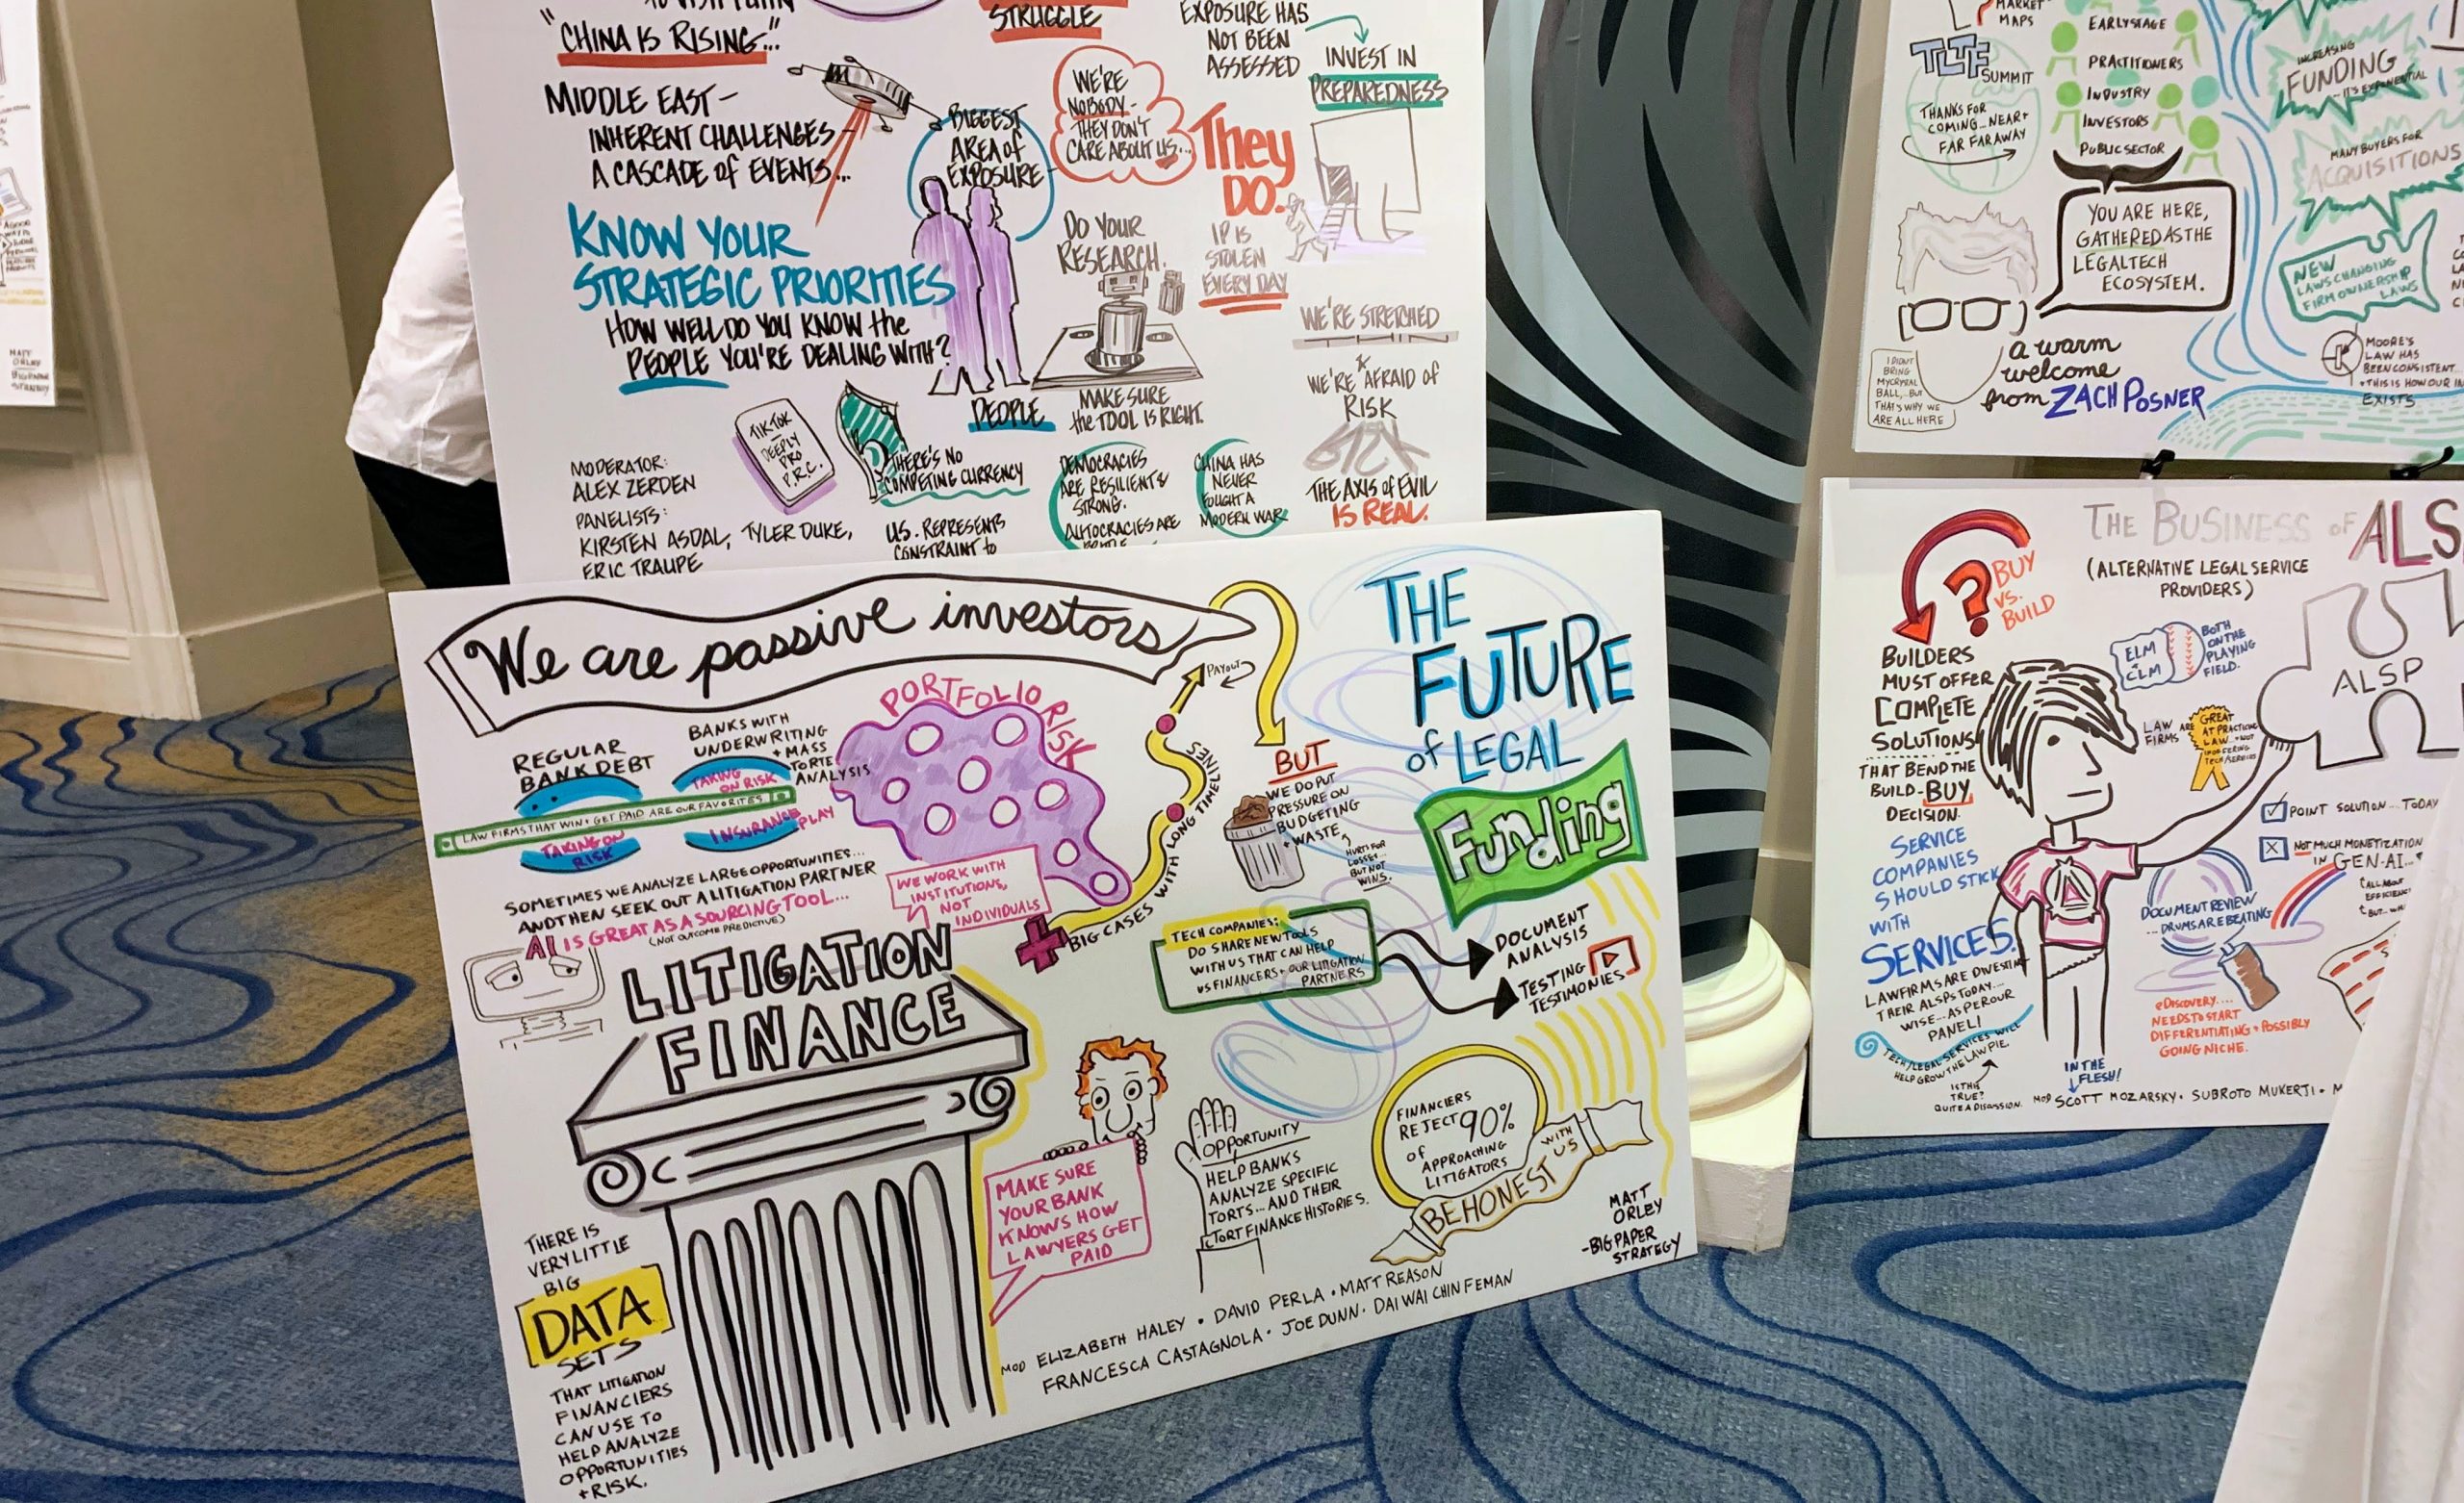 "CHINA IS RISING..."
MIDDLE EAST -
INHERENT CHALLENGES
A CASCADE of EVENTS...
KNOW YOUR
STRATEGIC PRIORITIES
HOW WELL DO YOU KNOW the
PEOPLE YOU'RE DEALING WITH?
MODERATOR:
ALEX ZERDEN
PANELISTS:
KIRSTEN ASDAL, TYLER DUKE,
ERIC TRAUPE
TIKTOK
DEEPLY
PRO
P.R.C.
THERE'S NO
COMPETING CURRENCY
U.S. REPRESENTS
CONSTRAINT to
STRUGGLE
BIGGEST
AREA of
EXPOSURE
PEOPLE
WE'RE
NOBODY -
THEY DON'T
CARE ABOUT US...
They
DO.
DO YOUR
RESEARCH.
MAKE SURE
the TOOL IS RIGHT.
IP IS
STOLEN
EVERY DAY
EXPOSURE HAS
NOT BEEN
ASSESSED
INVEST IN
PREPAREDNESS
WE'RE STRETCHED
THIN
WE'RE AFRAID of
RISK
DEMOCRACIES
ARE RESILIENT &
STRONG.
AUTOCRACIES ARE
CHINA HAS
NEVER
FOUGHT A
MODERN WAR
THE AXIS of EVIL
IS REAL.
We are passive investors
REGULAR
BANK DEBT
BANKS WITH
UNDERWRITING
+ MASS
TORTE
ANALYSIS
TAKING
ON RISK
LAW FIRMS THAT WIN + GET PAID ARE OUR FAVORITES
TAKING ON
RISK
INSURANCE PLAY
PORTFOLIO RISK
SOMETIMES WE ANALYZE LARGE OPPORTUNITIES...
AND THEN SEEK OUT A LITIGATION PARTNER
AI IS GREAT AS A SOURCING TOOL...
(NOT OUTCOME PREDICTIVE)
WE WORK WITH
INSTITUTIONS,
NOT
INDIVIDUALS
BIG CASES WITH LONG TIMELINES
PAYOUT
BUT
WE DO PUT
PRESSURE ON
BUDGETING
+ WASTE
HURTS FOR
LOSSES...
BUT NOT
WINS.
THE
FUTURE
of LEGAL
Funding
TECH COMPANIES:
DO SHARE NEW TOOLS
WITH US THAT CAN HELP
US FINANCERS + OUR LITIGATION
PARTNERS
DOCUMENT
ANALYSIS
TESTING
TESTIMONIES
LITIGATION
FINANCE
THERE IS
VERY LITTLE
BIG
DATA
SETS
THAT LITIGATION
FINANCIERS
CAN USE TO
HELP ANALYZE
OPPORTUNITIES
+ RISK.
MAKE SURE
YOUR BANK
KNOWS HOW
LAWYERS GET
PAID
OPPORTUNITY
HELP BANKS
ANALYZE SPECIFIC
TORTS... AND THEIR
TORT FINANCE HISTORIES.
FINANCIERS
REJECT 90%
of APPROACHING
LITIGATORS
BE HONEST WITH US
MATT
ORLEY
-BIG PAPER
STRATEGY
MOD ELIZABETH HALEY • DAVID PERLA • MATT REASON
FRANCESCA CASTAGNOLA • JOE DUNN • DAI WAI CHIN FEMAN
MARKET
MAPS
TLTF SUMMIT
THANKS FOR
COMING... NEAR +
FAR FARAWAY
EARLY STAGE
PRACTITIONERS
INDUSTRY
INVESTORS
PUBLIC SECTOR
YOU ARE HERE,
GATHERED AS THE
LEGALTECH
ECOSYSTEM.
I DIDN'T
BRING
MY CRYSTAL
BALL,.. BUT
THAT'S WHY WE
ARE ALL HERE
a warm
welcome
from ZACH POSNER
INCREASING
FUNDING
- IT'S EXPONENTIAL
MANY BUYERS FOR
ACQUISITIONS
NEW
LAWS CHANGING
FIRM OWNERSHIP
LAWS
MOORE'S
LAW HAS
BEEN CONSISTENT...
+ THIS IS HOW OUR
EXISTS
THE BUSINESS of ALS
(ALTERNATIVE LEGAL SERVICE
PROVIDERS)
BUY
VS.
BUILD
BUILDERS
MUST OFFER
COMPLETE
SOLUTIONS
THAT BEND THE
BUILD-BUY
DECISION.
SERVICE
COMPANIES
SHOULD STICK
WITH
SERVICES.
LAWFIRMS ARE DIVESTING
THEIR ALSPS TODAY...
WISE... AS PER OUR
PANEL!
TECH/LEGAL SERVICES WILL
HELP GROW THE LAW PIE.
IS THIS
TRUE?
QUITE A DISCUSSION.
IN THE
FLESH!
ELM
+
CLM
BOTH
ON THE
PLAYING
FIELD.
LAW
FIRMS
ARE
GREAT
AT PRACTICING
LAW
ALSP
POINT SOLUTION... TODAY
NOT MUCH MONETIZATION
IN GEN-AI...
DOCUMENT REVIEW
...DRUMS ARE BEATING
eDISCOVERY....
NEEDS TO START
DIFFERENTIATING + POSSIBLY
GOING NICHE.
MOD SCOTT MOZARSKY • SUBROTO MUKERJI • M
MATT
ORLEY
BIG PAPER
STRATEGY